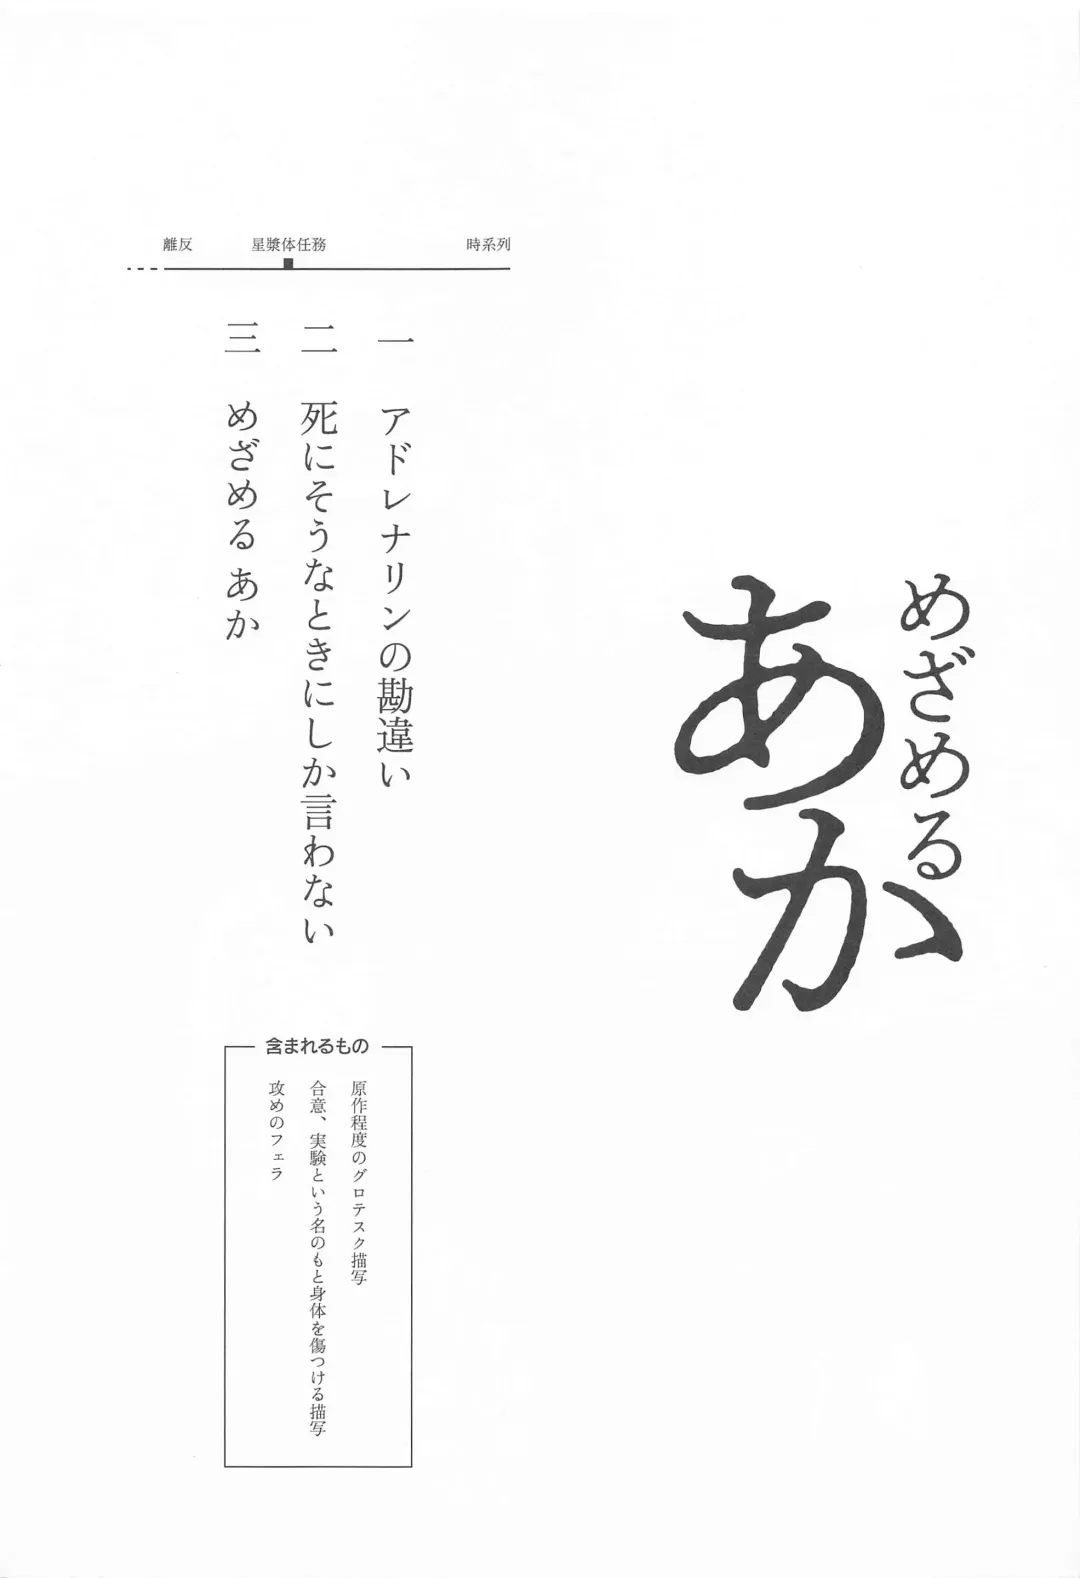 めざめる
あか
時系列
星漿体任務
離反
一 アドレナリンの勘違い
二 死にそうなときにしか言わない
三 めざめる あか
含まれるもの
原作程度のグロテスク描写
合意、実験という名のもと身体を傷つける描写
攻めのフェラ